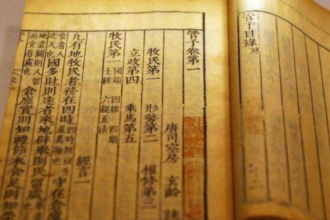 管子目錄
管子卷第一
唐司空房 玄齡 註
牧民第一 形勢第二 權修第三
立政第四 乘馬第五
牧民第一 國頌 四維 四順 士經 六親五法 經言一
凡有地牧民者務在四時 守在倉
國多財則遠者來地辟舉則民留處
倉廩實則知禮節衣食足則知